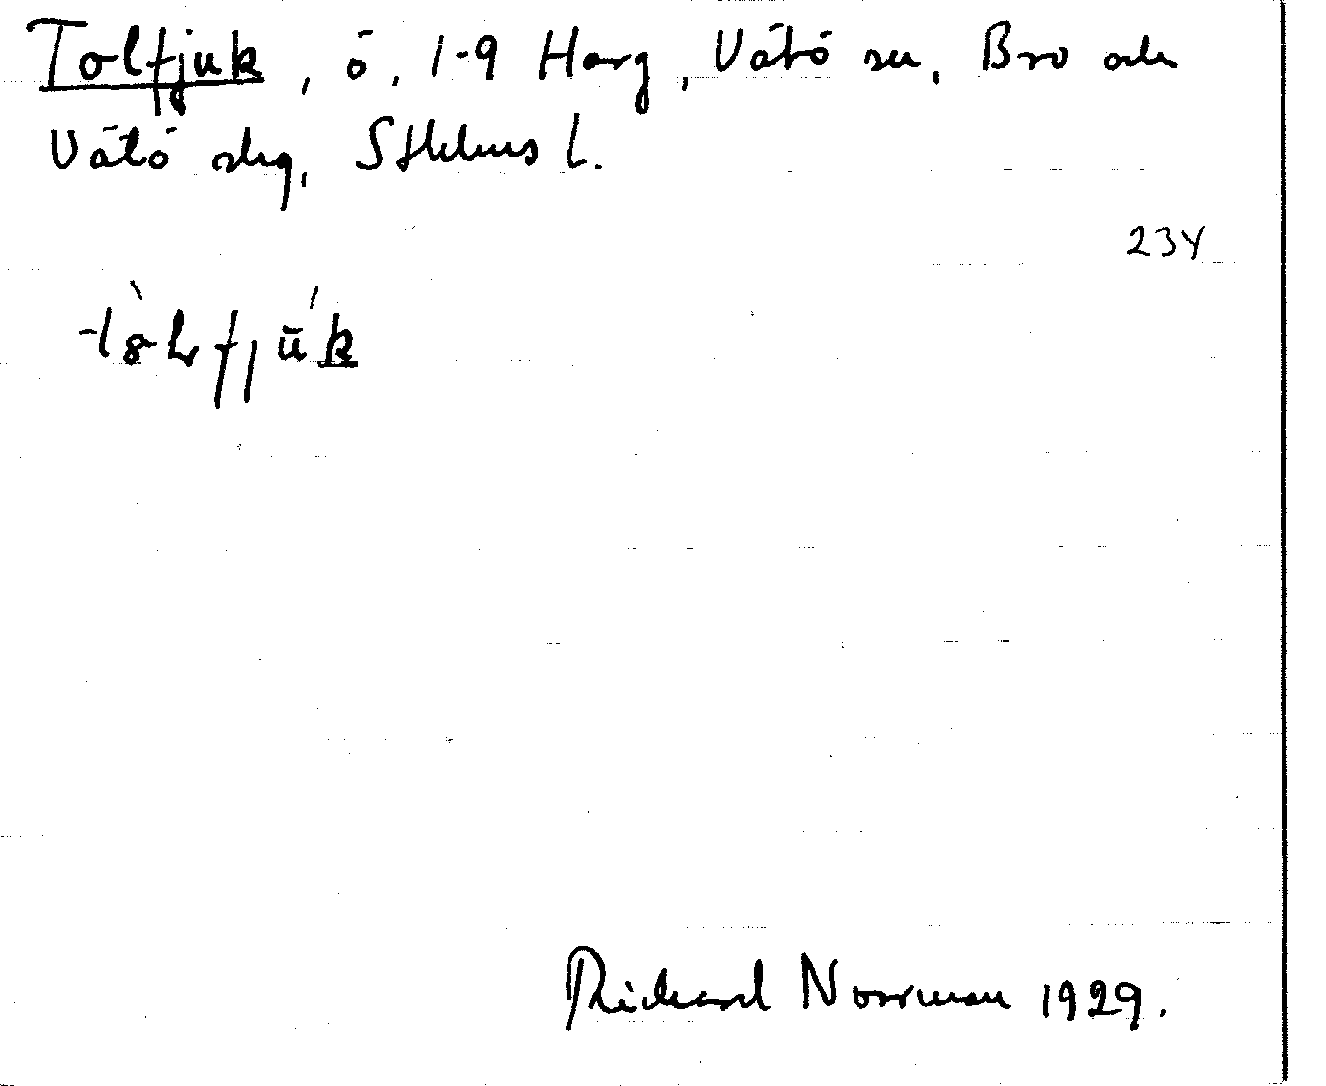 Tolfjuk, ö, 1-9 Harg, Vätö sn, Bro och
Vätö skg, Sthlms l.
234
Rickard Norrman 1929.